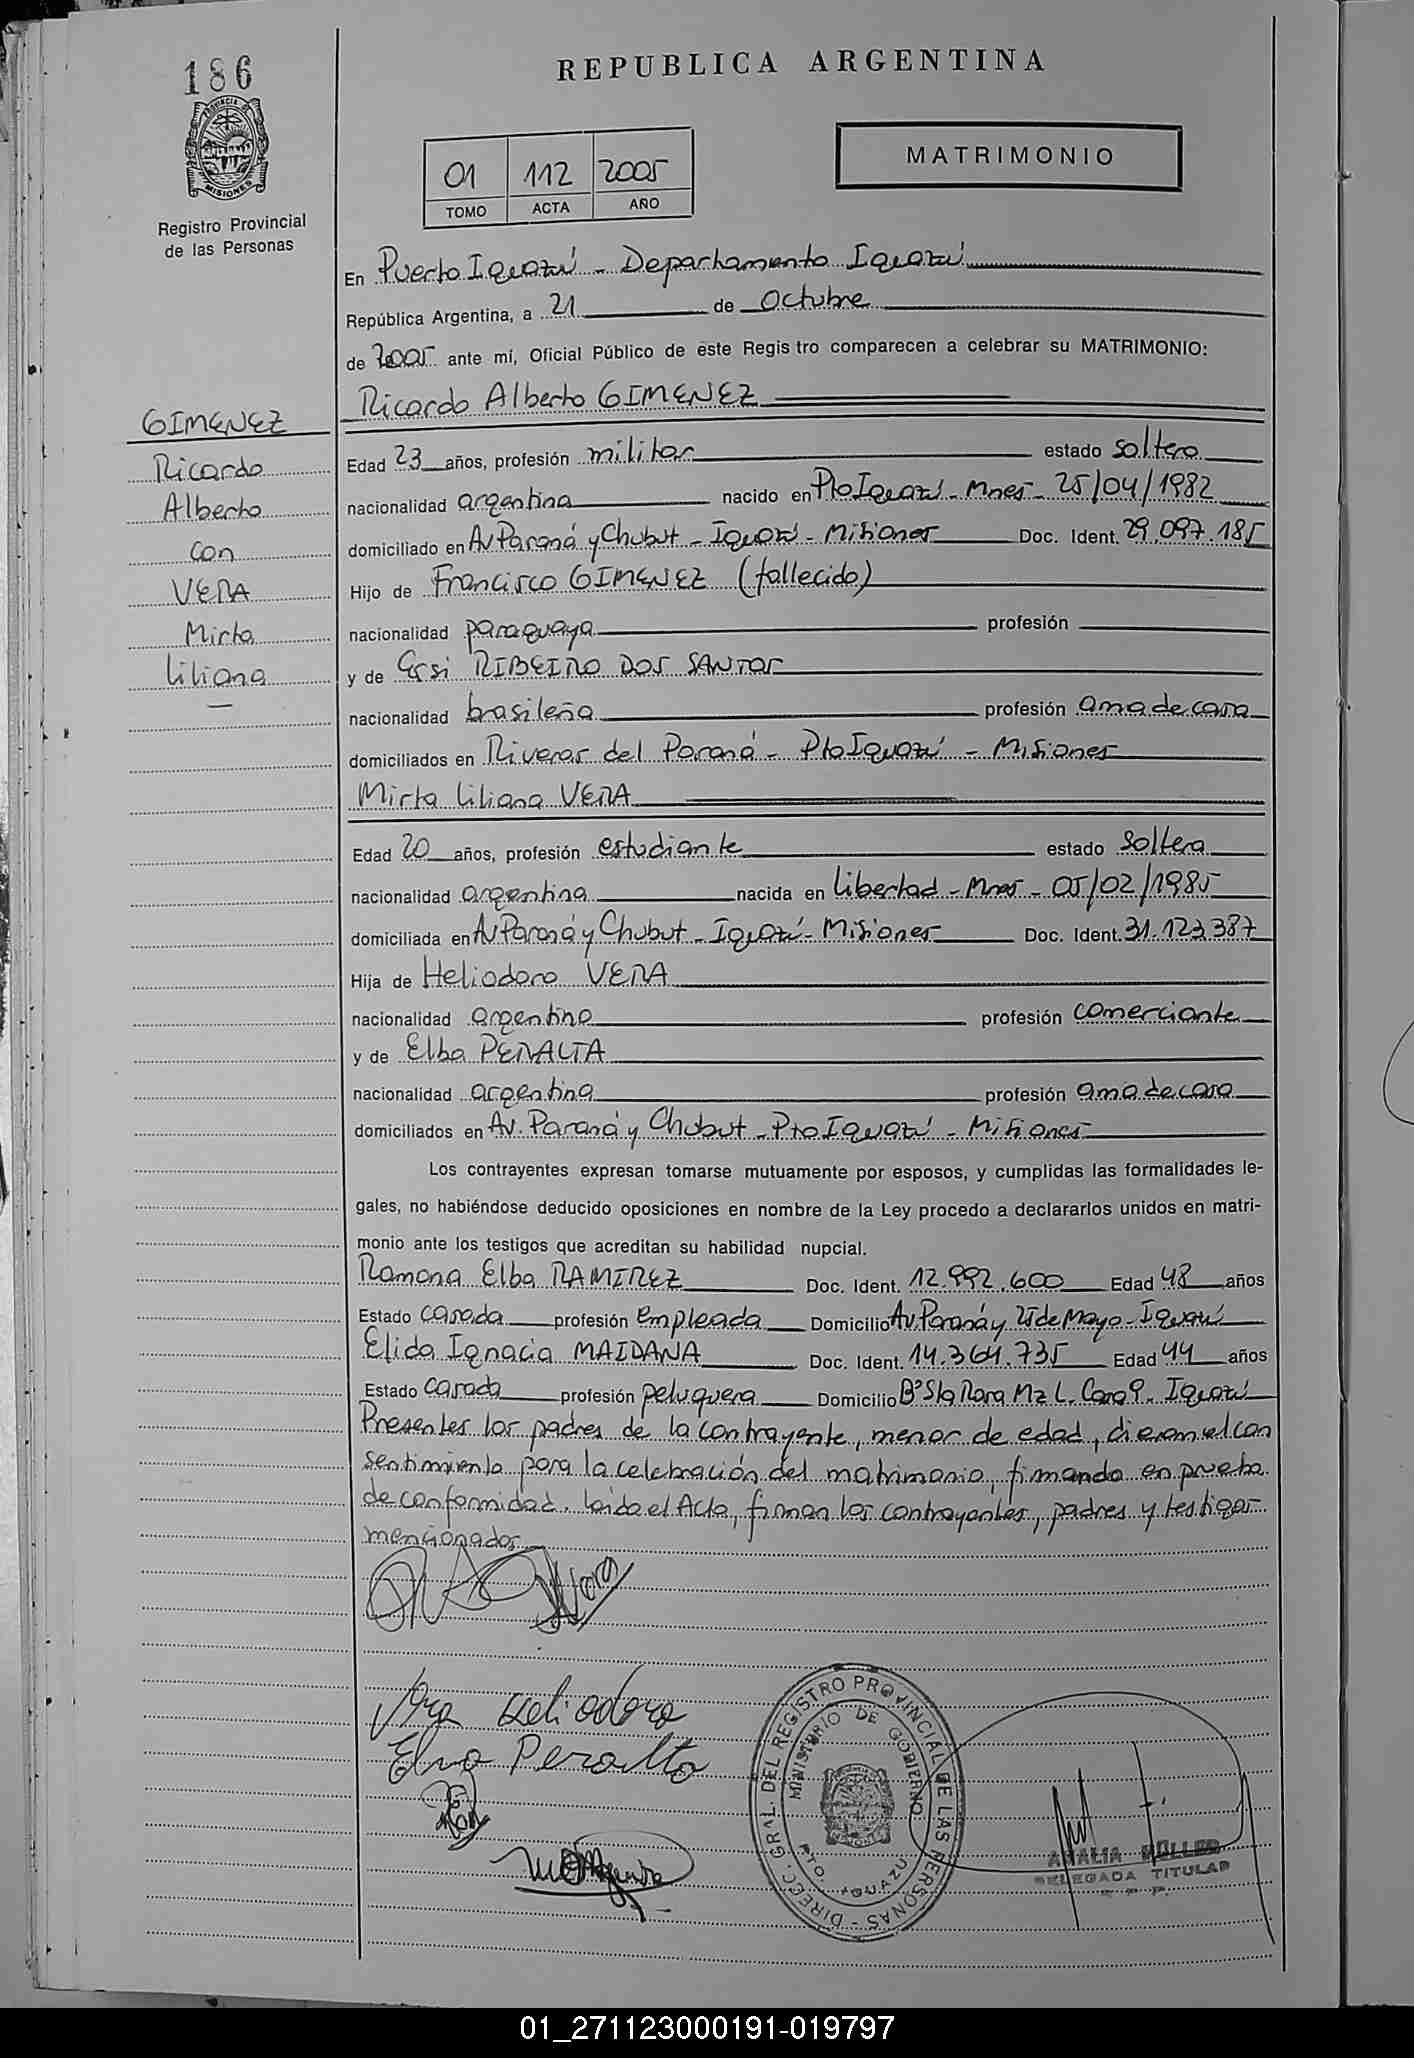 186
PROVINCIA DE
MISIONES
Registro Provincial
de las Personas
REPUBLICA ARGENTINA
01 112 2005
TOMO ACTA AÑO
MATRIMONIO
En Puerto Iguazú - Departamento Iguazú
República Argentina, a 21 de Octubre
de 2005 ante mí, Oficial Público de este Registro comparecen a celebrar su MATRIMONIO:
GIMENEZ
Ricardo
Alberto
con
VERA
Mirta
Liliana
Ricardo Alberto GIMENEZ
Edad 23 años, profesión militar estado soltero
nacionalidad argentina nacido en Pto Iguazú - Mnes - 25/04/1982
domiciliado en Av Paraná y Chubut - Iguazú - Misiones Doc. Ident. 29.097.185
Hijo de Francisco GIMENEZ (fallecido)
nacionalidad paraguaya profesión
y de Ersi RIBEIRO DOS SANTOS
nacionalidad brasileña profesión ama de casa
domiciliados en Riveras del Paraná - Pto Iguazú - Misiones
Mirta Liliana VERA
Edad 20 años, profesión estudiante estado soltera
nacionalidad argentina nacida en Libertad - Mnes - 05/02/1985
domiciliada en Av Paraná y Chubut - Iguazú - Misiones Doc. Ident. 31.123.387
Hija de Heliodoro VERA
nacionalidad argentina profesión comerciante
y de Elba PERALTA
nacionalidad argentina profesión ama de casa
domiciliados en Av. Paraná y Chubut - Pto Iguazú - Misiones
Los contrayentes expresan tomarse mutuamente por esposos, y cumplidas las formalidades le-
gales, no habiéndose deducido oposiciones en nombre de la Ley procedo a declararlos unidos en matri-
monio ante los testigos que acreditan su habilidad nupcial.
Ramona Elba RAMIREZ Doc. Ident. 12.992.600 Edad 48 años
Estado casada profesión empleada Domicilio Av. Paraná y 25 de Mayo - Iguazú
Elida Ignacia MAIDANA Doc. Ident. 14.364.735 Edad 44 años
Estado casada profesión peluquera Domicilio Bº Sta Rosa Mz L. Casa 9 - Iguazú
Presentes los padres de la contrayente, menor de edad, dieron el con
sentimiento para la celebración del matrimonio, firmando en prueba
de conformidad. Leida el Acta, firman los contrayentes, padres y testigos
mencionados
Vera Heliodoro
Elva Peralta
DIREC. GRAL. DEL REGISTRO PROVINCIAL DE LAS PERSONAS -
MINISTERIO DE GOBIERNO
PTO. IGUAZU
DELEGADA TITULAR
01_271123000191-019797